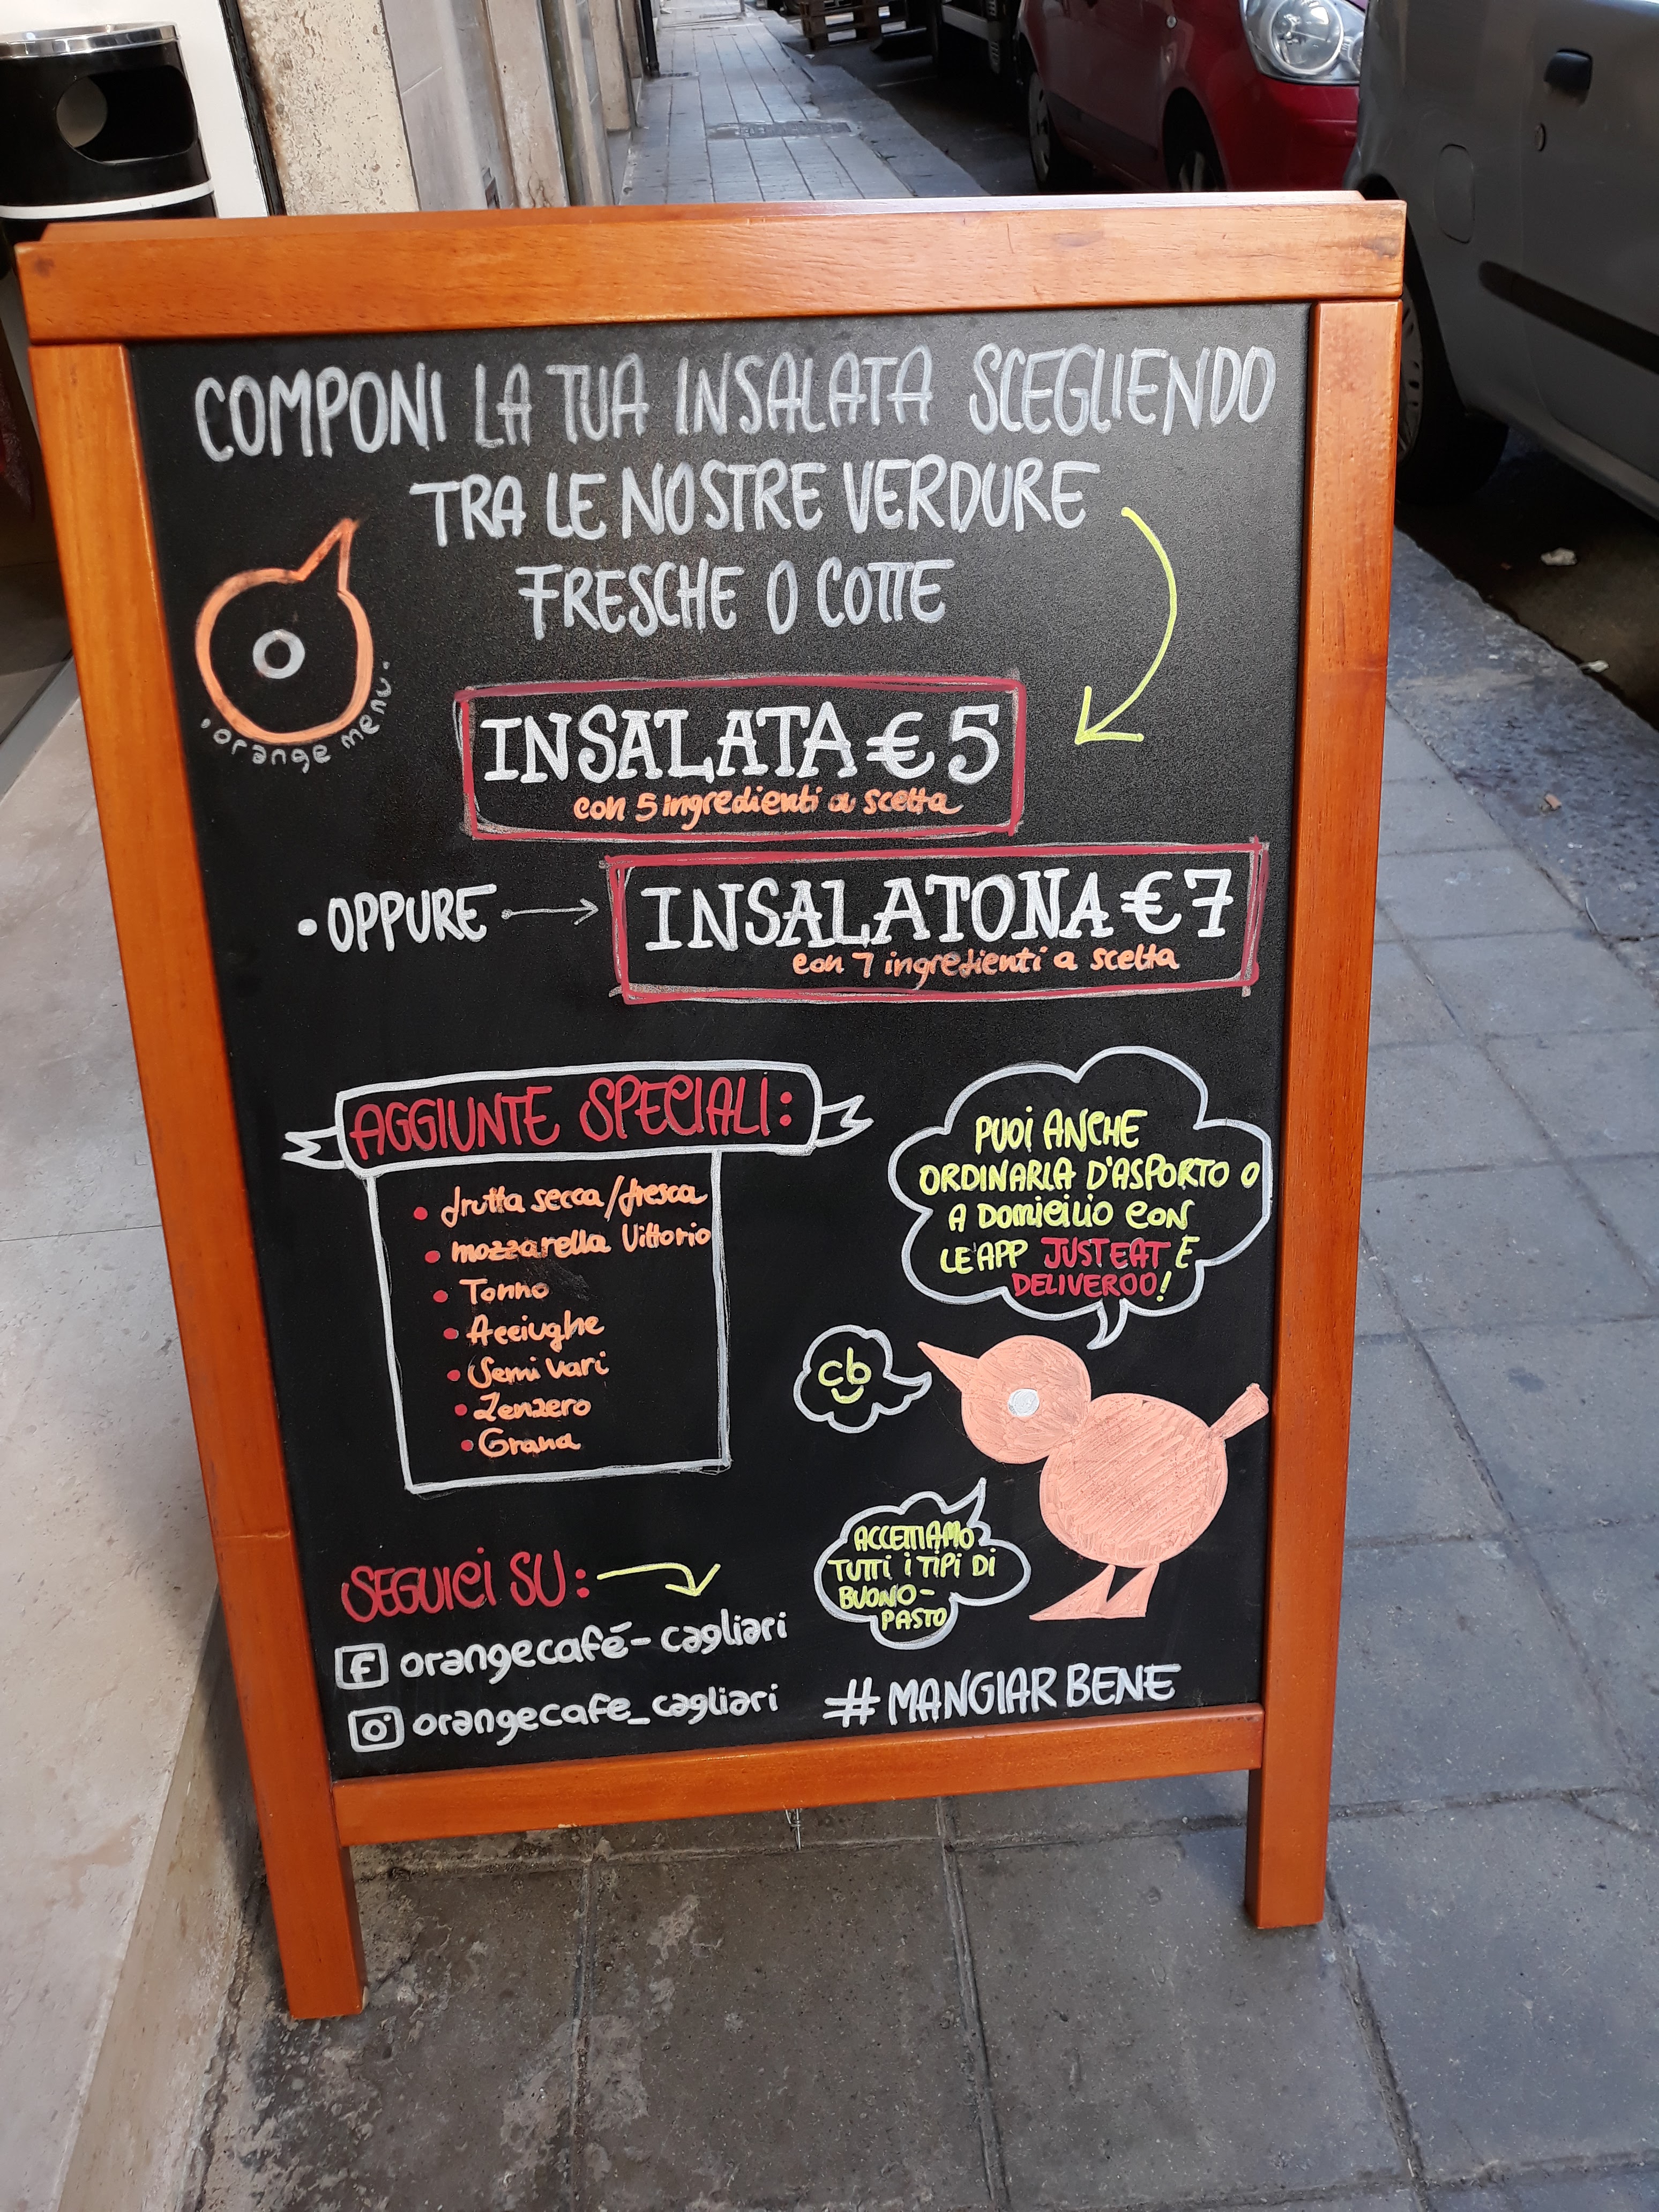 COMPONI LA TUA INSALATA SCEGLIENDO
TRA LE NOSTRE VERDURE
FRESCHE O COTTE
.orange menu.
INSALATA € 5
con 5 ingredienti a scelta
• OPPURE
INSALATONA € 7
con 7 ingredienti a scelta
AGGIUNTE SPECIALI:
• frutta secca/fresca
• mozzarella Vittorio
• Tonno
• Acciughe
• Semi vari
• Zenzero
• Grana
PUOI ANCHE
ORDINARLA D'ASPORTO O
A DOMICILIO CON
LE APP JUST EAT E
DELIVEROO!
cb
ACCETTIAMO
TUTTI I TIPI DI
BUONO-
PASTO
SEGUICI SU:
f orangecafé-cagliari
orangecafe_cagliari
#MANGIAR BENE